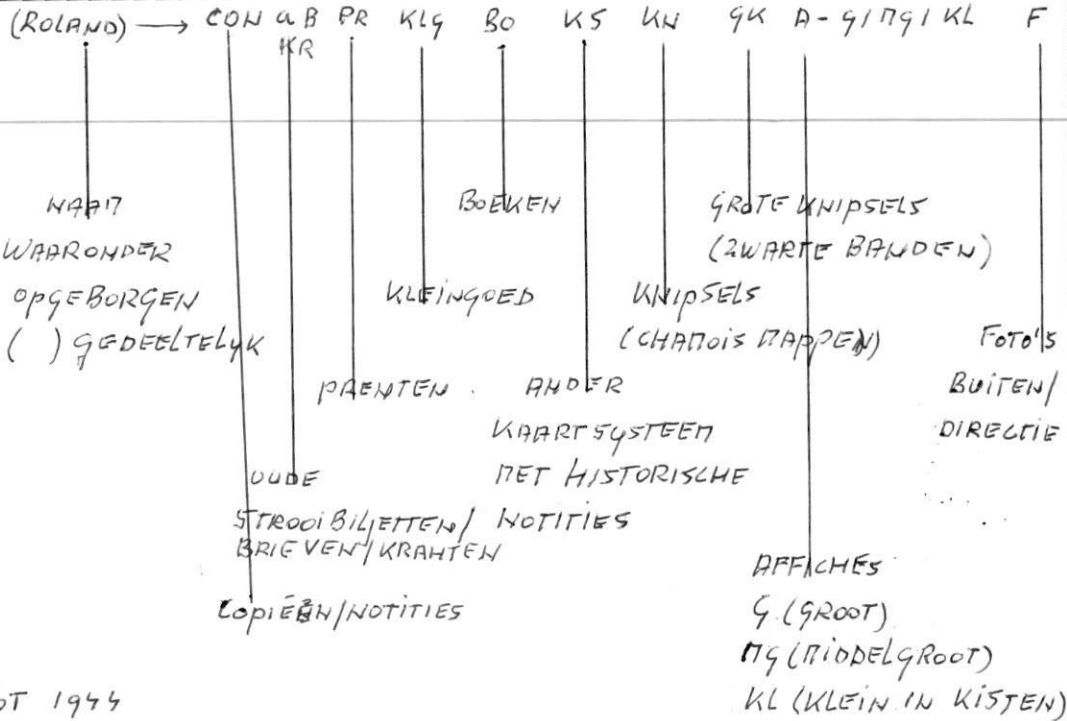 (ROLAND) → CON a B PR KLG BO KS KN GK A - G/MG/KL F
KR
NAAM
WAARONDER
OPGEBORGEN
( ) GEDEELTELYK
BOEKEN
GROTE KNIPSELS
(ZWARTE BANDEN)
KLEINGOED
KNIPSELS
(CHAMOIS MAPPEN)
FOTO'S
BUITEN/
DIRECTIE
PRENTEN
ANDER
KAARTSYSTEEM
MET HISTORISCHE
NOTITIES
OUDE
STROOIBILJETTEN/
BRIEVEN/KRANTEN
COPIEËN/NOTITIES
AFFICHES
G (GROOT)
MG (MIDDELGROOT)
KL (KLEIN IN KISTEN)
OT 1944